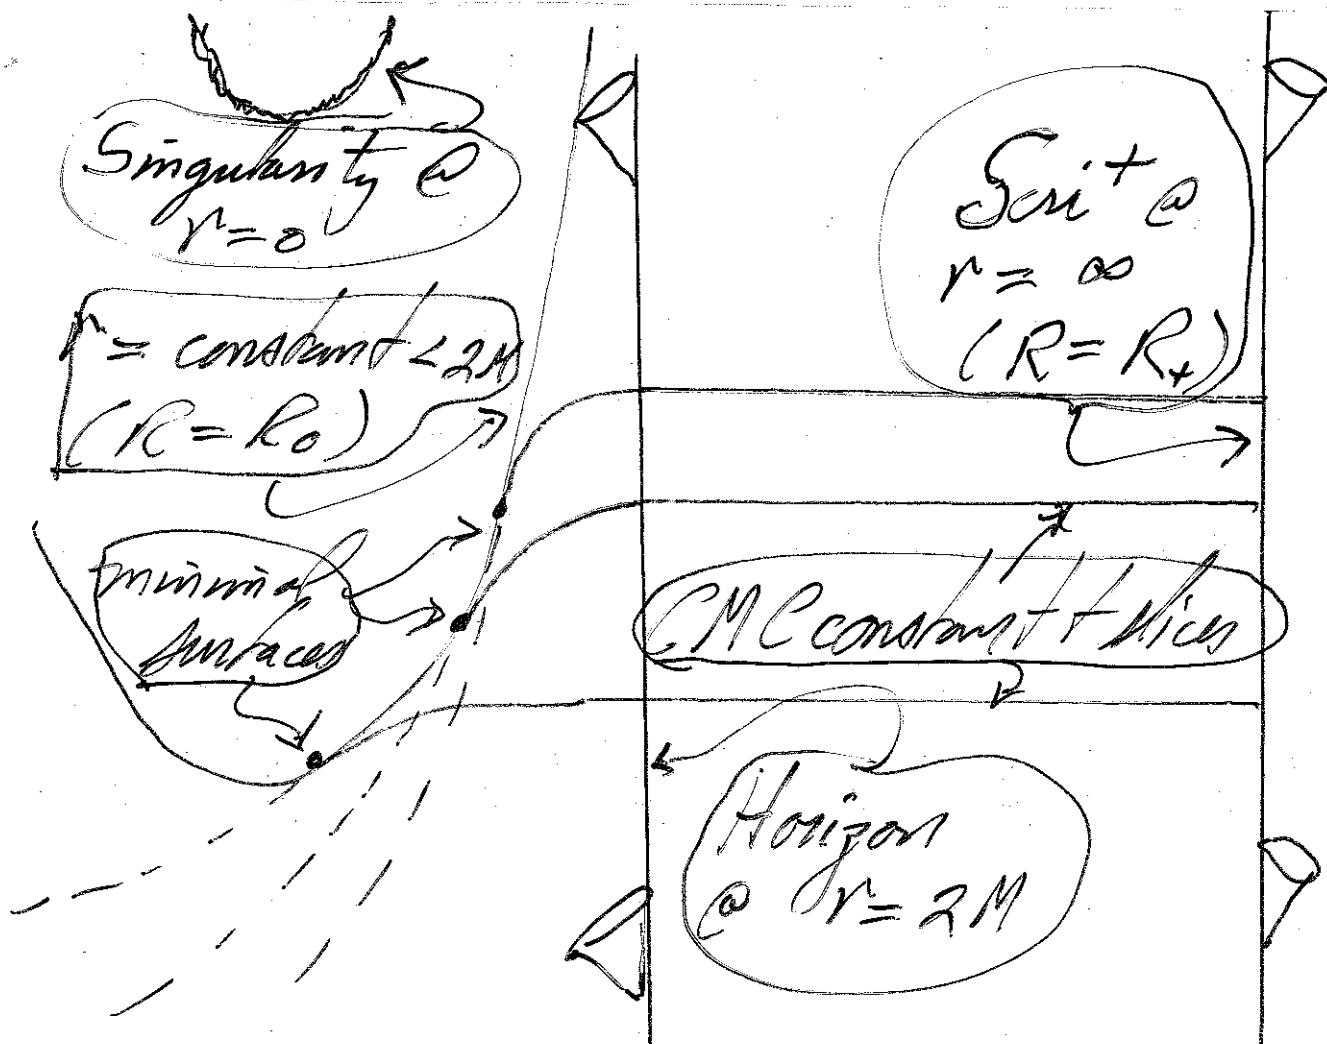 Singularity @
r=0
Scri+ @
r = ∞
(R = R+)
r = constant < 2M
(R = R0)
minimal
surfaces
CMC constant t slices
Horizon
@ r = 2M